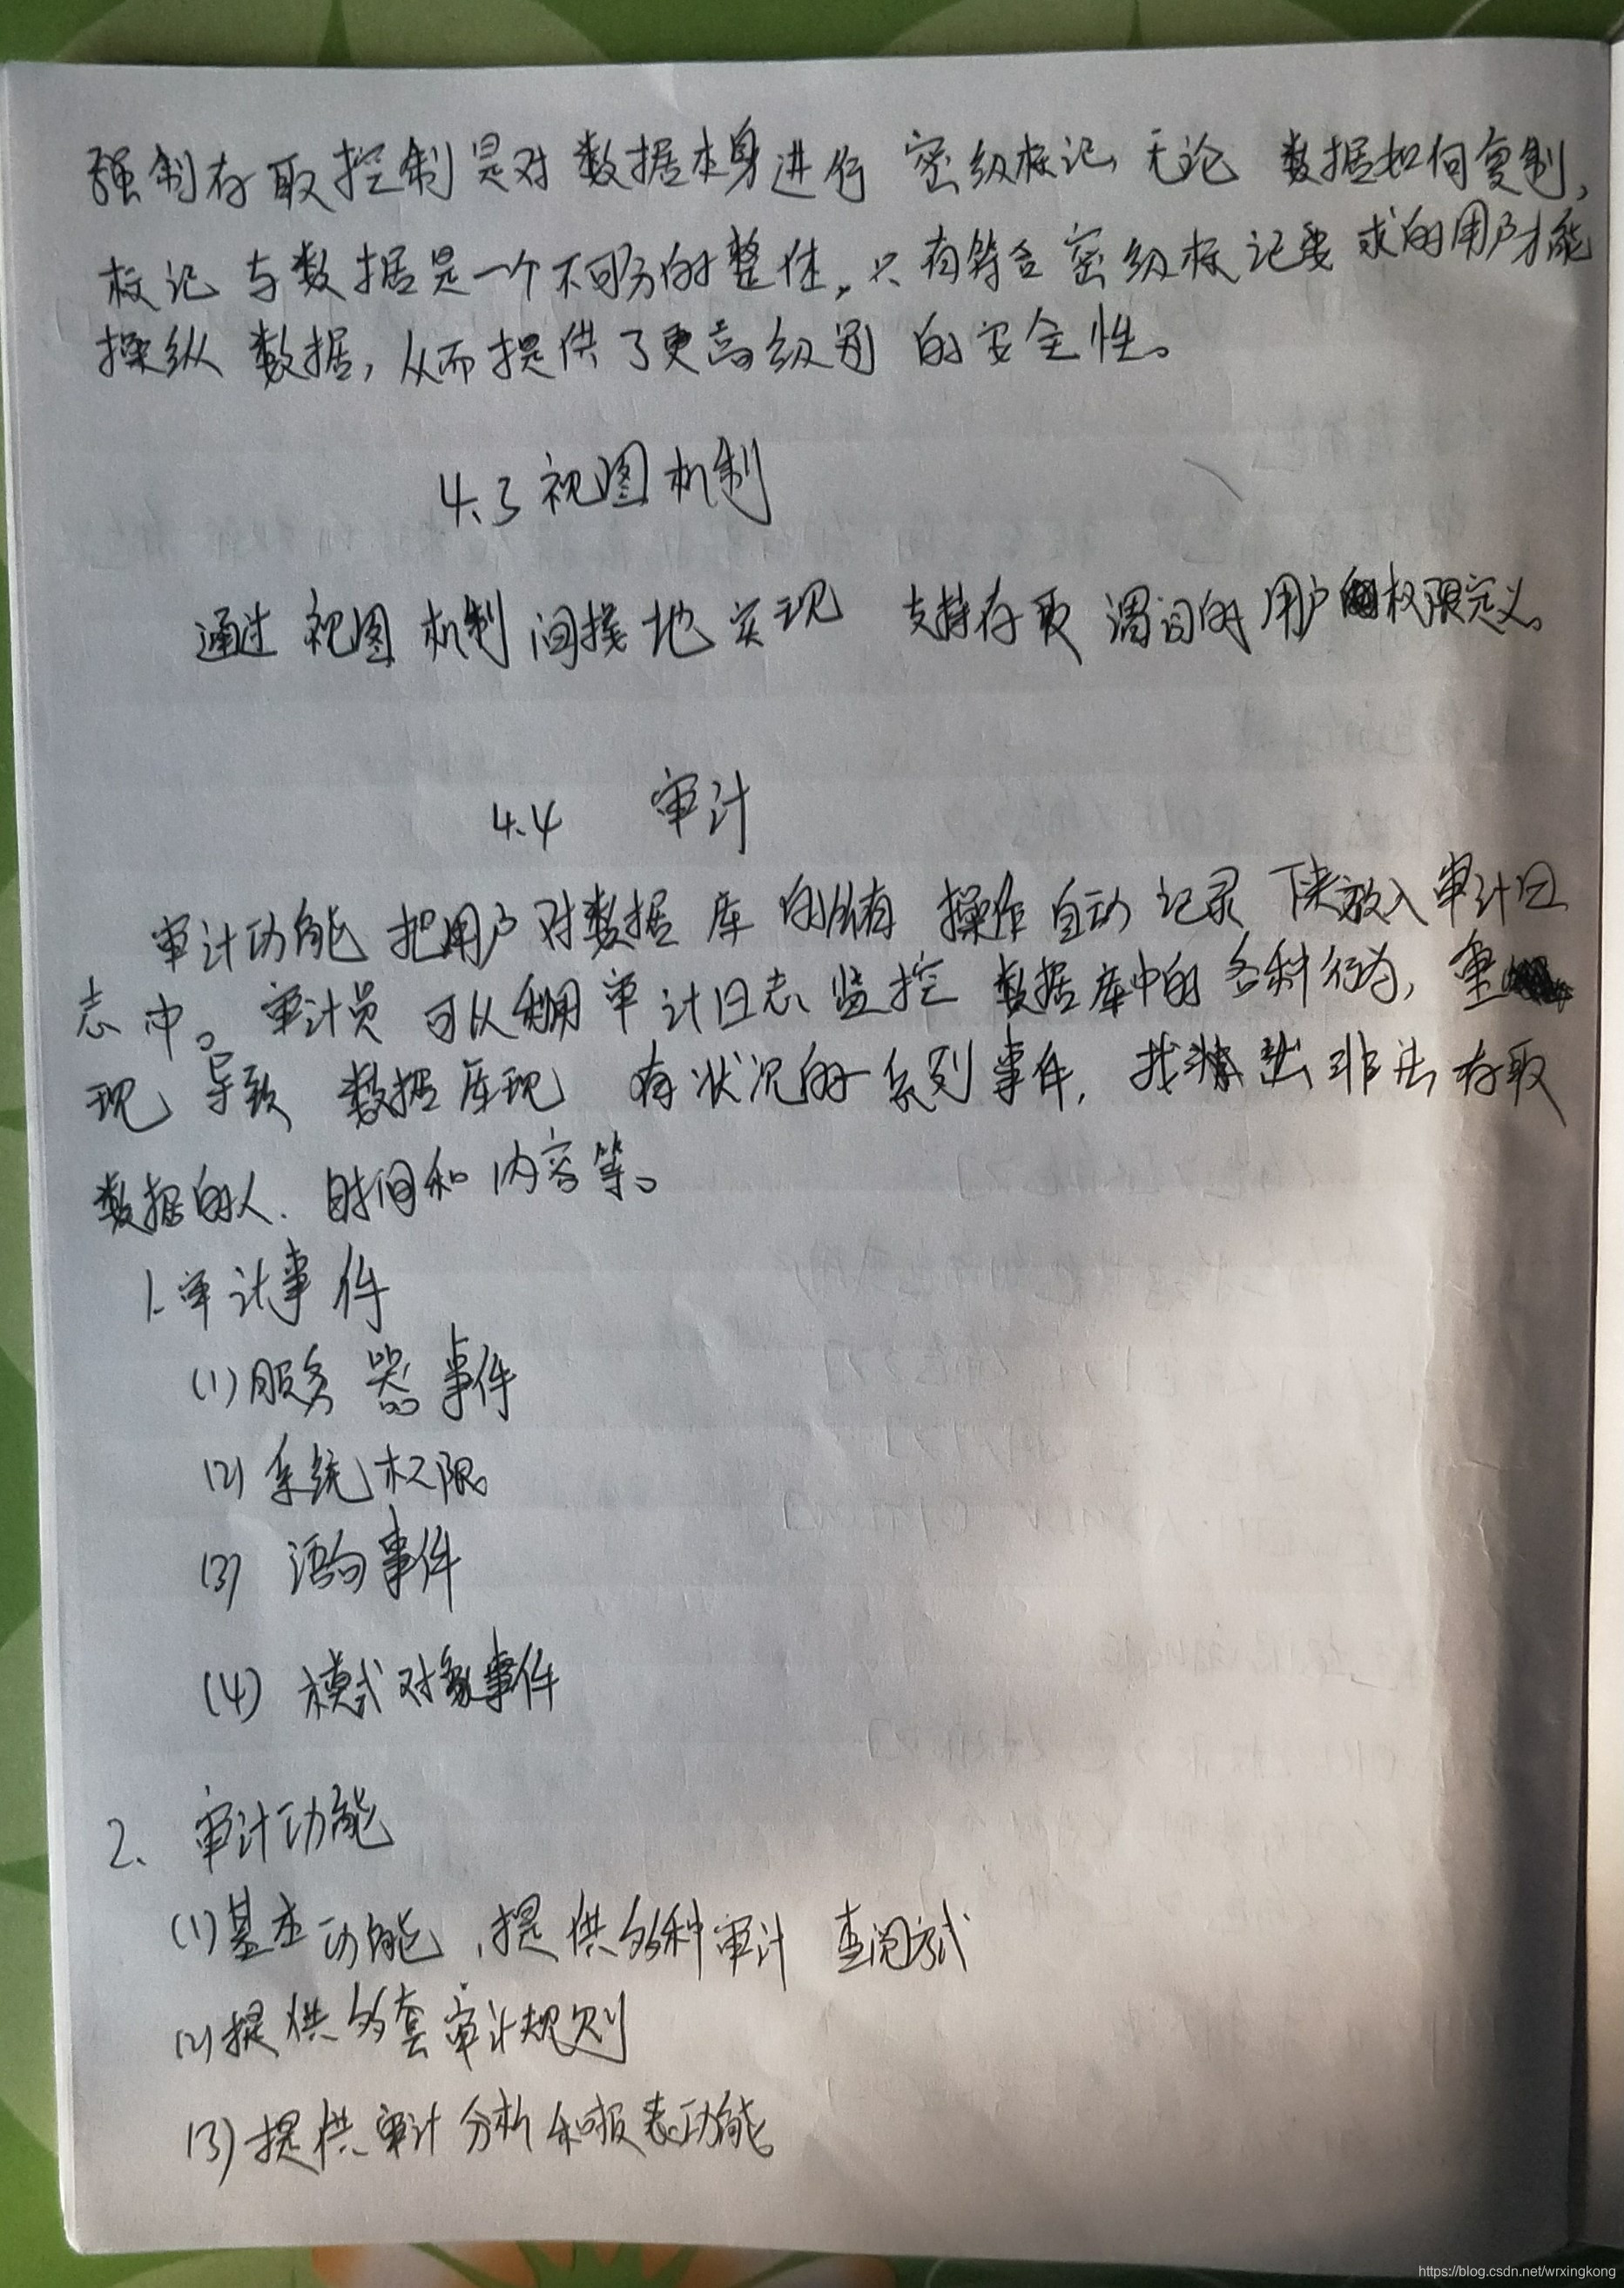 强制存取控制是对数据本身进行密级标记，无论数据如何复制，
标记与数据是一个不可分的整体，只有符合密级标记要求的用户才能
操纵数据，从而提供了更高级别的安全性。
4.3 视图机制
通过视图机制间接地实现支持存取谓词的用户权限定义。
4.4 审计
审计功能把用户对数据库的所有操作自动记录下来放入审计日
志中。审计员可以利用审计日志监控数据库中的各种行为，重
现导致数据库现有状况的一系列事件，找出非法存取
数据的人、时间和内容等。
1.审计事件
(1)服务器事件
(2)系统权限
(3)语句事件
(4)模式对象事件
2、审计功能
(1)基本功能，提供多种审计查阅方式
(2)提供多套审计规则
(3)提供审计分析和报表功能
https://blog.csdn.net/wrxingkong